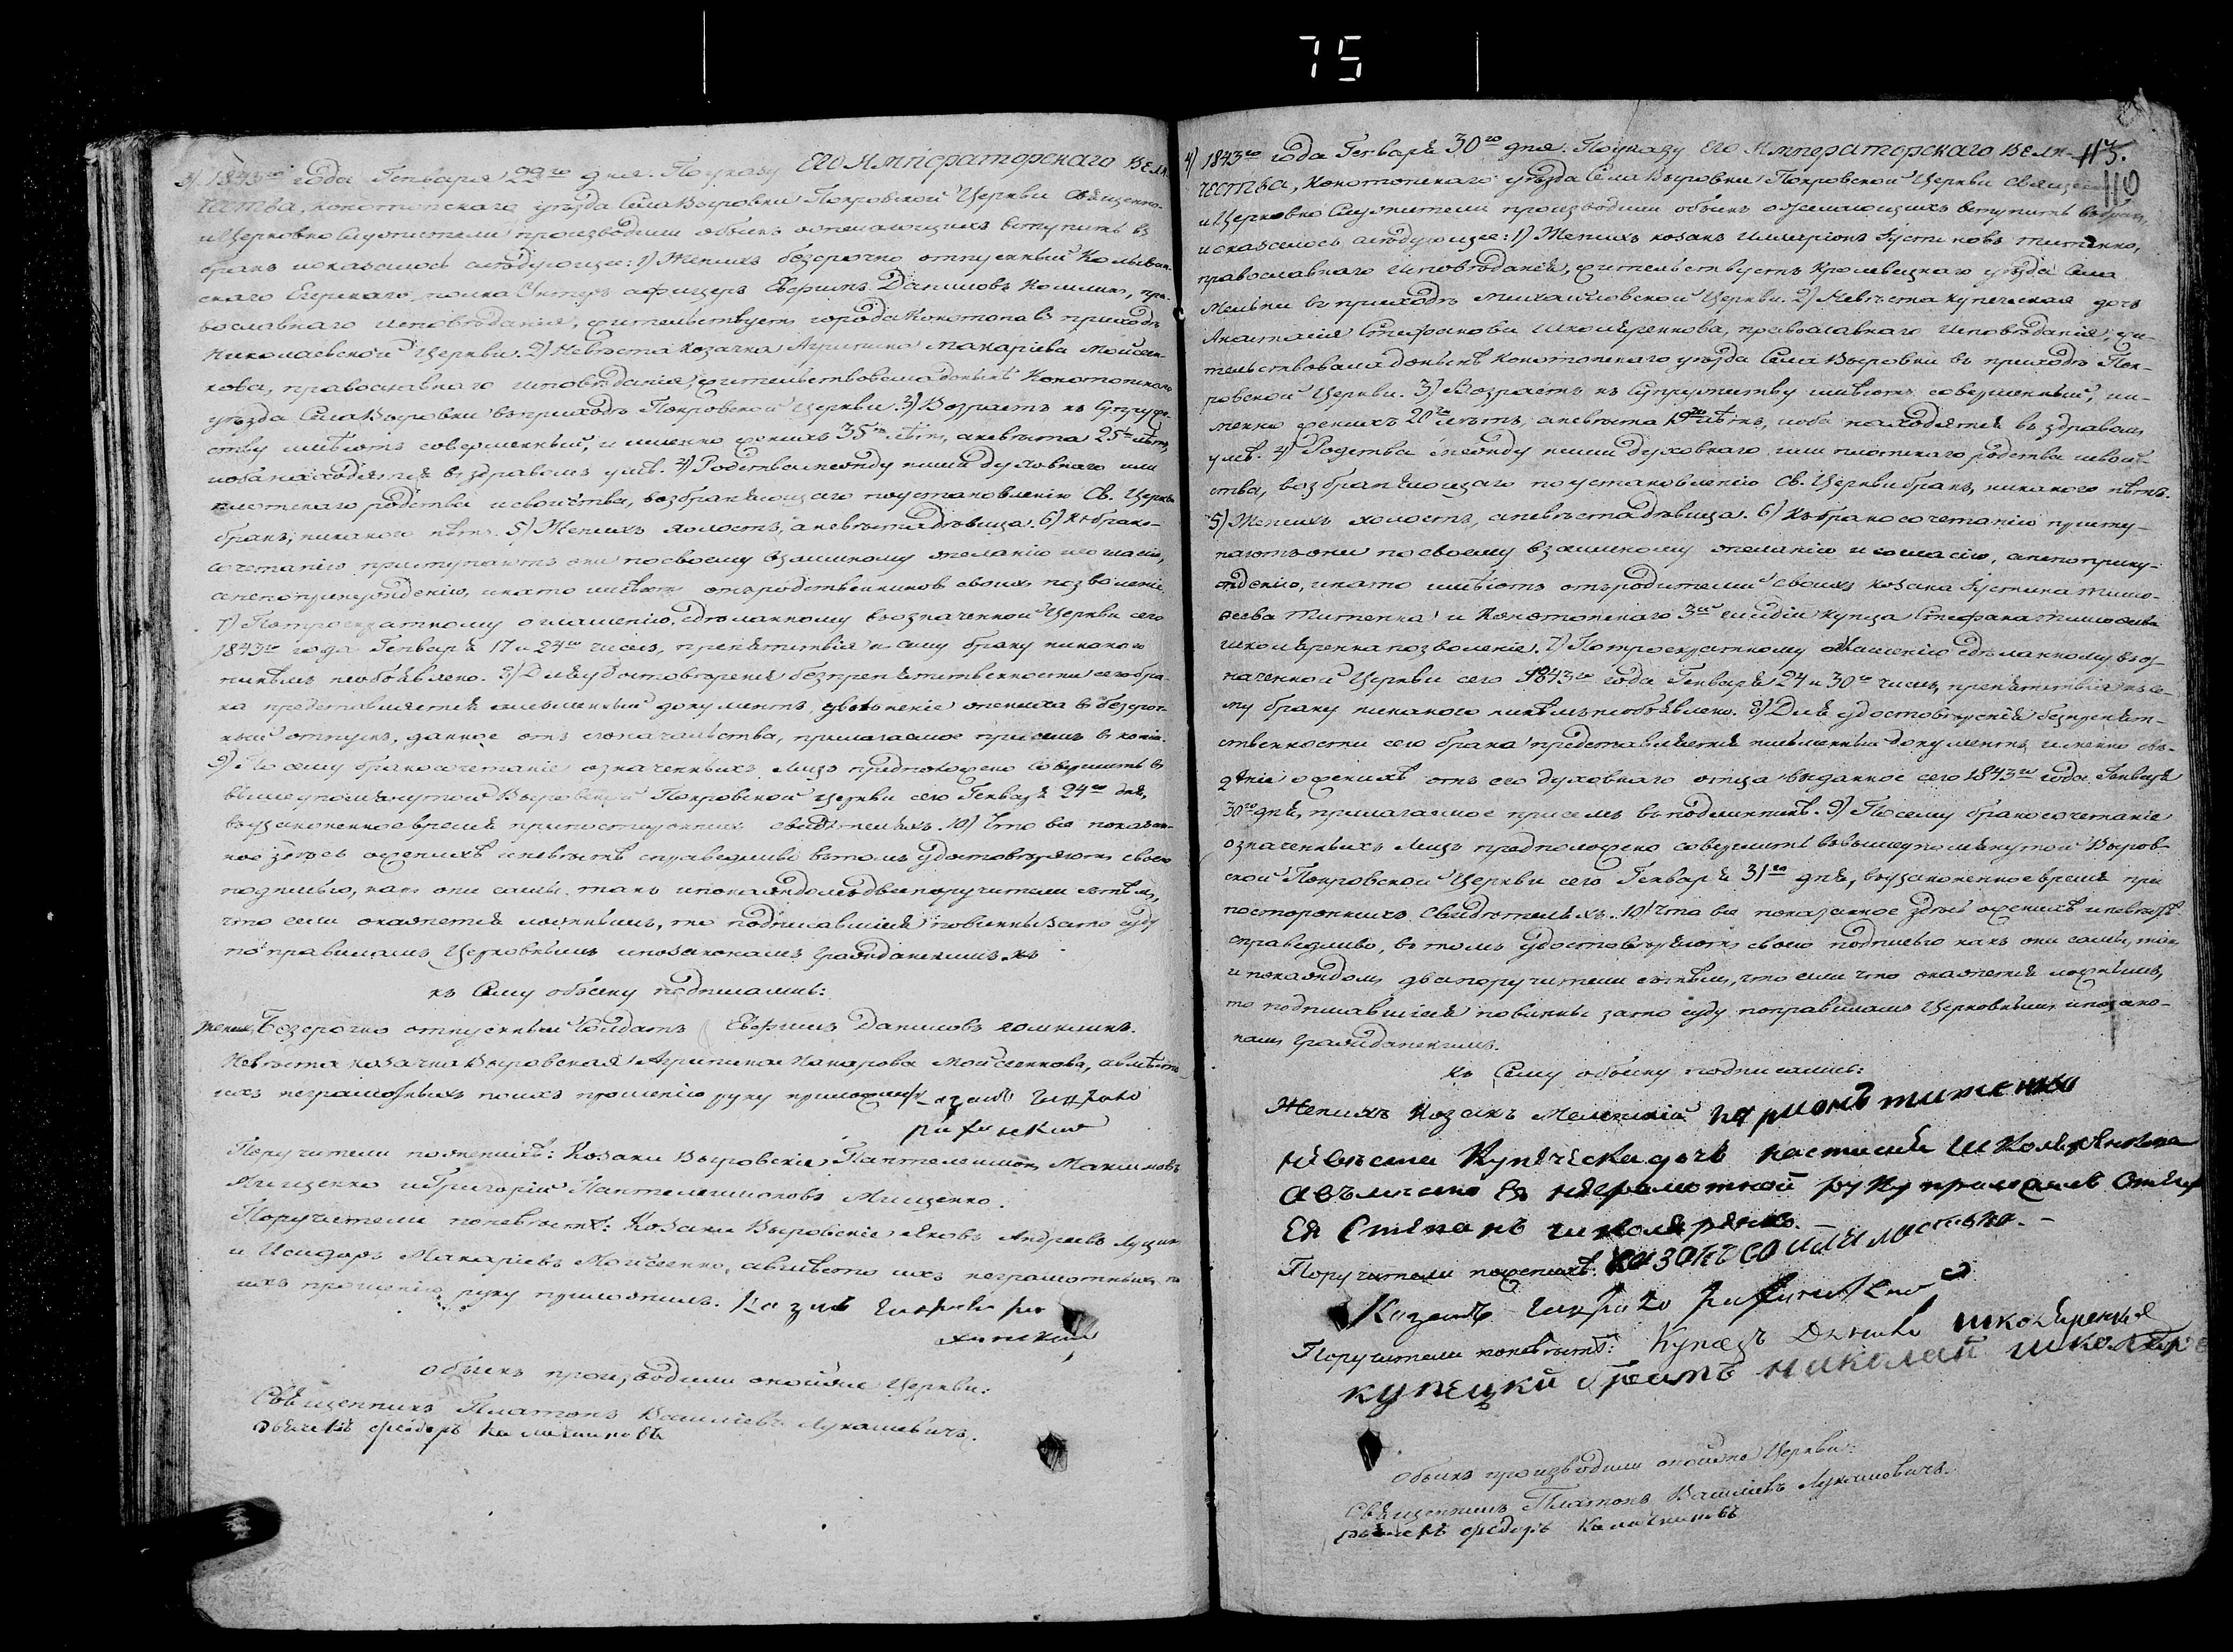 75
3) 1843го года Генваря 22го дня. По указу Его Императорскаго Вели-
чества, Конотопскаго уѣзда Села Выровки Покровской Церкви Священно-
и Церковно Служители производили обыскъ о желающихъ вступить въ
бракъ и оказалось слѣдующее: 1) Женихъ безсрочно отпускный Колыван-
скаго Егерскаго полка Унтеръ афицеръ Ефримъ Даниловъ, пра-
вославнаго исповѣданія, жительствуетъ города Конотопа въ приходѣ
Николаевской Церкви. 2) Невѣста Козачка Агрипина Макаріева Мойсеен-
кова, православнаго исповѣданія, жительствовала донынѣ Конотопскаго
уѣзда Села Выровки въ приходѣ Покровской Церкви. 3) Возрастъ къ Супруже-
ству имѣютъ совершенный, и именно женихъ 35ть лѣтъ, а невѣста 25ть лѣтъ,
и оба находятся въ здравомъ умѣ. 4) Родства между ними духовнаго или
плотскаго родства и свойства, возбраняющаго по установленію Св. Церкви
бракъ, никакого нѣтъ. 5) Женихъ холостъ, а невѣста дѣвица. 6) Къ брако-
сочетанію приступаютъ они по своему взаимному желанію и согласію,
а не по принужденію, и на то имѣютъ отъ родственниковъ своихъ позволеніе.
7) По троекратному оглашенію, сдѣланному въ означенной Церкви сего
1843го года Генваря 17 и 24го чиселъ, препятствія къ сему браку никакого
никѣмъ не объявлено. 8) Для удостовѣренія безпрепятственности сего бра-
ка представляется письменный документъ, увольненіе жениха въ безсроч-
ный отпускъ, данное отъ его начальства, прилагаемое при семъ въ копіи.
9) По сему бракосочетаніе означенныхъ лицъ предположено совершить въ
вышеупомянутой Выровской Покровской Церкви сего Генваря 24го дня,
въ узаконенное время при постороннихъ свидѣтеляхъ. 10) Что все показан-
ное здѣсь о женихѣ и невѣстѣ справедливо въ томъ удостовѣряютъ своею
подписью, какъ они сами, такъ и по каждомъ два поручители съ тѣмъ,
что если окажется ложнымъ, то подписавшіеся повинны за то суду
по правиламъ Церковнымъ и по законамъ Гражданскимъ.
къ Сему обыску подписались:
Женихъ Безсрочно отпускный Солдатъ Ефримъ Даниловъ
Невѣста козачка Выровская Агрипина Макарова Мойсеенкова, а вмѣсто
ихъ неграмотныхъ по ихъ прошенію руку приложилъ
Поручители по женихѣ: Козаки Выровскіе Пантелеимонъ
Мищенко и Григорій Пантелеимоновъ Мищенко.
Поручители по невѣстѣ: Козаки Выровскіе Яковъ Андреевъ
и Исидоръ Макаріевъ Мойсеенко, а вмѣсто ихъ неграмотныхъ по
ихъ прошенію руку приложилъ. Казакъ
обыскъ производили онойже Церкви:
Священникъ Платонъ Василіевъ Лукашевичъ.
Дьячекъ Федоръ
113.
110
4) 1843го года Генваря 30го дня. По указу Его Императорскаго Вели-
чества, Конотопскаго уѣзда Села Выровки Покровской Церкви Священно-
и Церковно Служители производили обыскъ о желающихъ вступить въ бракъ,
и оказалось слѣдующее: 1) Женихъ козакъ Илларіонъ Іустиновъ Титенко,
православнаго исповѣданія, жительствуетъ Кролевецкаго уѣзда Села
Мельни въ приходѣ Михайловской Церкви. 2) Невѣста купеческая дочь
Анастасія Стефанова Школяренкова, православнаго исповѣданія, жи-
тельствовала донынѣ Конотопскаго уѣзда Села Выровки въ приходѣ Пок-
ровской Церкви. 3) Возрастъ къ Супружеству имѣютъ совершенный, и и-
менно женихъ 20ть лѣтъ, а невѣста 19ть лѣтъ, и оба находятся въ здравомъ
умѣ. 4) Родства между ними духовнаго или плотскаго родства и свой-
ства, возбраняющаго по установленію Св. Церкви бракъ, никакого нѣтъ.
5) Женихъ холостъ, а невѣста дѣвица. 6) Къ бракосочетанію присту-
паютъ они по своему взаимному желанію и согласію, а не по прину-
жденію, и на то имѣютъ отъ родителей своихъ козака Іустина Тимо-
ѳеева Титенка и Конотопскаго 3ей гильдіи купца Стефана Тимоѳеева
Школяренка позволеніе. 7) По троекратному оглашенію сдѣланному въ оз-
наченной Церкви сего 1843го года Генваря 24 и 30го чиселъ, препятствія къ се-
му браку никакого никѣмъ не объявлено. 8) Для удостовѣренія безпрепят-
ственности сего брака представляется письменный документъ, именно свѣ-
дѣніе о женихѣ отъ его духовнаго отца выданное сего 1843го года Генваря
30го дня, прилагаемое при семъ въ подлинникѣ. 9) По сему бракосочетаніе
означенныхъ лицъ предположено совершить въ вышеупомянутой Выров-
ской Покровской Церкви сего Генваря 31го дня, въ узаконенное время при
постороннихъ Свидѣтеляхъ. 10) Что все показанное здѣсь о женихѣ и невѣстѣ
справедливо, въ томъ удостовѣряютъ своею подписью какъ они сами, такъ
и по каждомъ два поручители съ тѣмъ, что если что окажется ложнымъ,
то подписавшіеся повинны за то суду по правиламъ Церковнымъ и по зако-
намъ Гражданскимъ.
къ Сему обыску подписались:
Женихъ Козакъ Мельнскій титенко
Невѣста Купческа дочь настасия школяренкова
а вѣмисто Ея неграмотной руку приложилъ отецъ
Ея Степанъ школяренко.
Поручители по женихѣ: казакъ
Казакъ
Поручители по невѣстѣ: Купецъ школяренко
купецкй братъ николай школяре
Обыскъ производили онойже Церкви:
Священникъ Платонъ Василіевъ Лукашевичъ.
Дьячекъ Федоръ